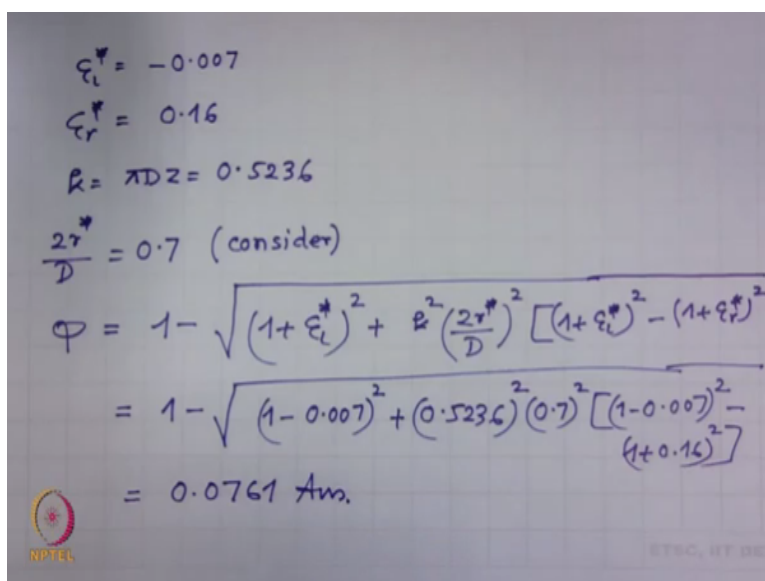 ξ_L* = -0.007
ξ_r* = 0.16
k = πDZ = 0.5236
2r*/D = 0.7 (consider)
φ = 1 - √((1+ξ_L*)² + k²(2r*/D)² [(1+ξ_L*)² - (1+ξ_r*)²
= 1 - √((1-0.007)² + (0.5236)²(0.7)² [(1-0.007)² -
(1+0.16)²]
= 0.0761 Ans.
NPTEL
ETSC, IIT DE